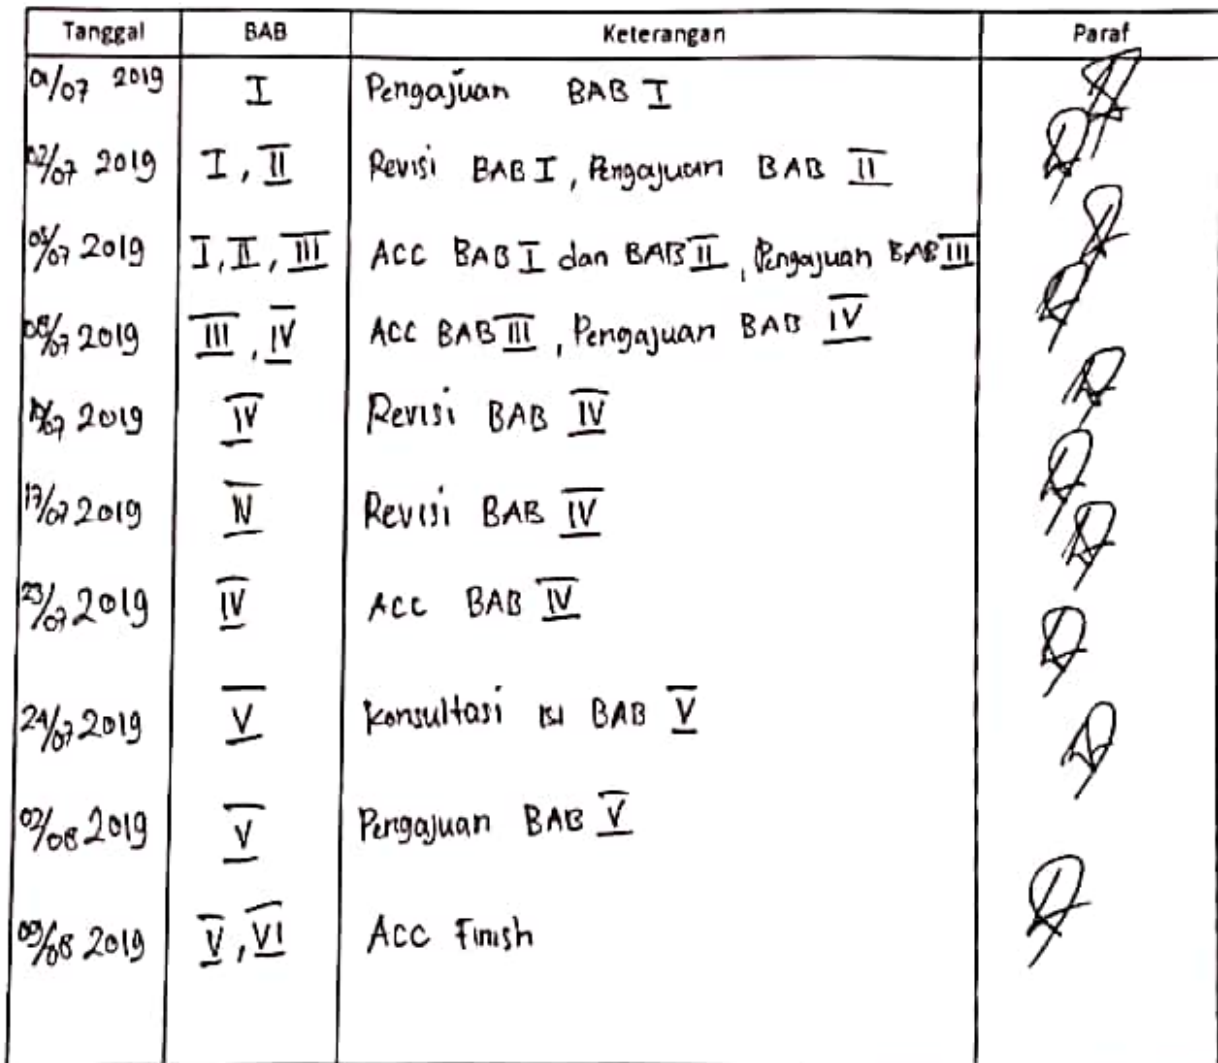 Tanggal BAB Keterangan Paraf
01/07 2019 I Pengajuan BAB I
02/07 2019 I, II Revisi BAB I, Pengajuan BAB II
05/07 2019 I, II, III ACC BAB I dan BAB II, Pengajuan BAB III
08/07 2019 III, IV ACC BAB III, Pengajuan BAB IV
/07 2019 IV Revisi BAB IV
17/07 2019 IV Revisi BAB IV
23/07 2019 IV ACC BAB IV
24/07 2019 V Konsultasi isi BAB V
02/08 2019 V Pengajuan BAB V
09/08 2019 V, VI ACC Finish